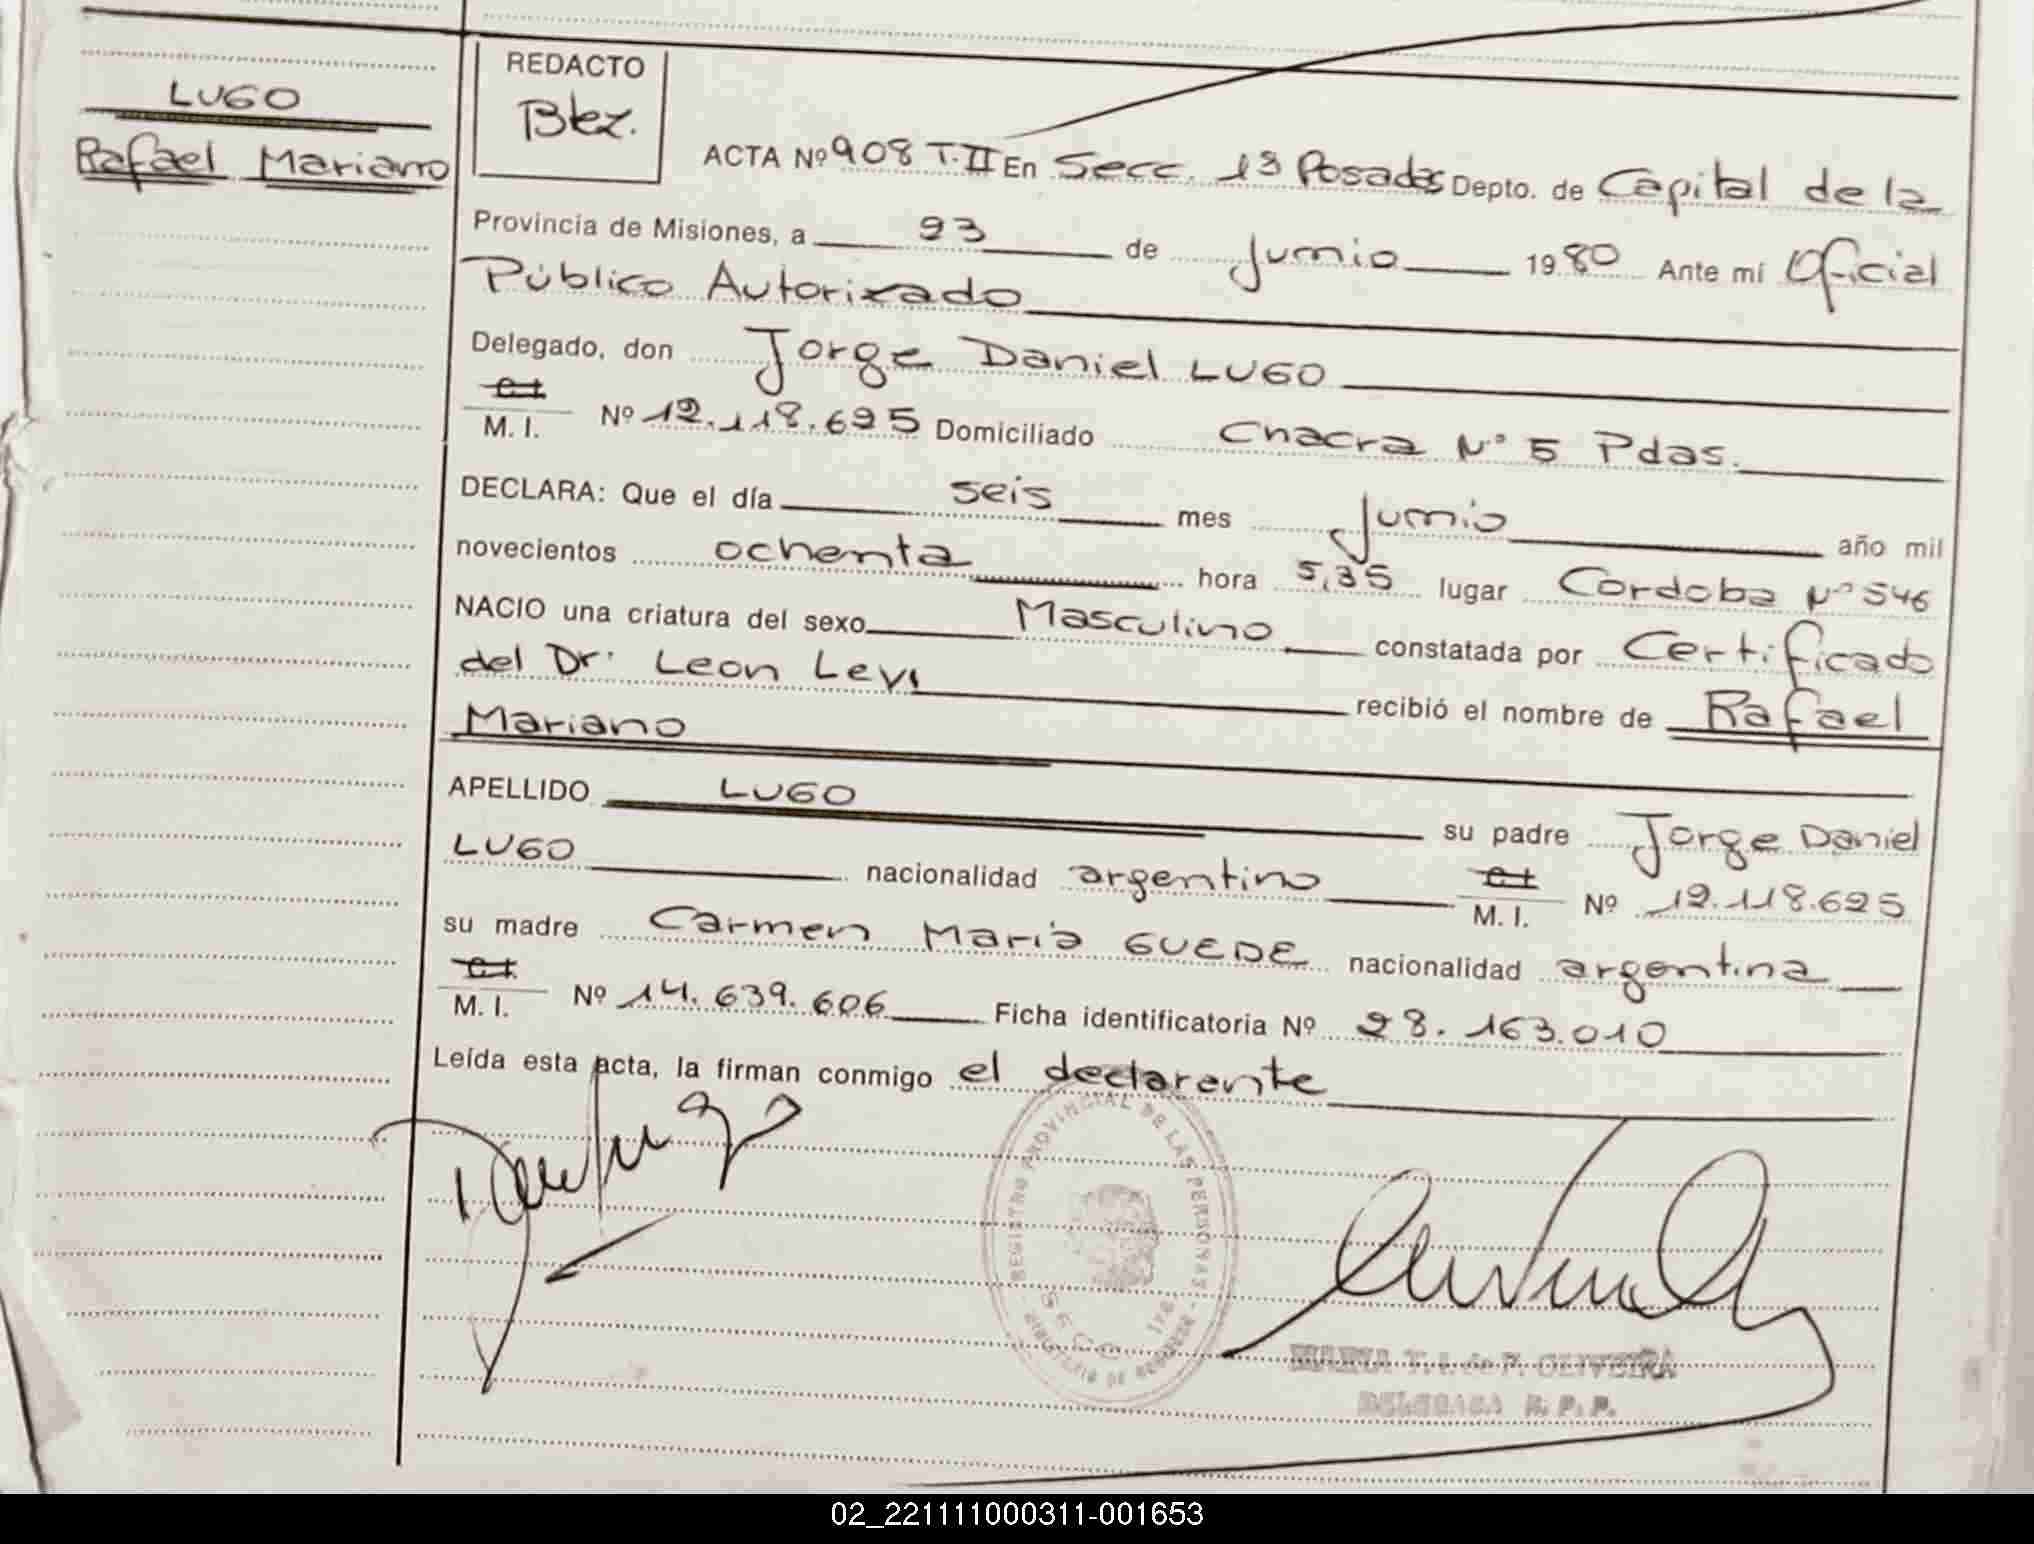 LUGO
Rafael Mariano
REDACTO
Btez.
ACTA Nº 908 T.II En Secc. 1ª Posadas Depto. de Capital de la
Provincia de Misiones, a 23 de Junio 1980 Ante mí Oficial
Público Autorizado
Delegado, don Jorge Daniel LUGO
C.I.
M. I. Nº 12.118.625 Domiciliado Chacra Nº 5 Pdas.
DECLARA: Que el día seis mes Junio año mil
novecientos ochenta hora 5,35 lugar Cordoba Nº 546
NACIO una criatura del sexo Masculino constatada por Certificado
del Dr. Leon Levi recibió el nombre de Rafael
Mariano
APELLIDO LUGO su padre Jorge Daniel
LUGO nacionalidad argentino C.I. M. I. Nº 12.118.625
su madre Carmen María GUEDE nacionalidad argentina
C.I.
M. I. Nº 14.639.606 Ficha identificatoria Nº 28.163.010
Leída esta acta, la firman conmigo el declarante
REGISTRO PROVINCIAL DE LAS PERSONAS
MINISTERIO DE GOBIERNO
SECC. 1ra.
MARIA T. I. de F. OLIVEIRA
DELEGADA R. P. P.
02_221111000311-001653